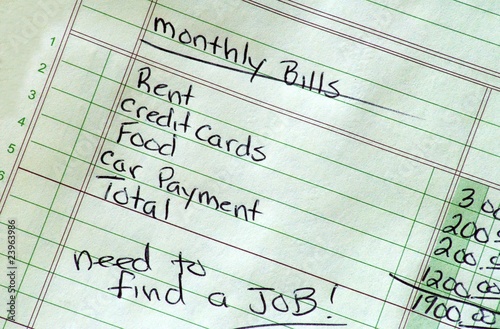 monthly Bills
1
2 Rent 300
3 credit cards 200
4 Food 200
5 car Payment 1200.00
6 Total 1900.00
need to
find a JOB!
Adobe Stock | #23963986